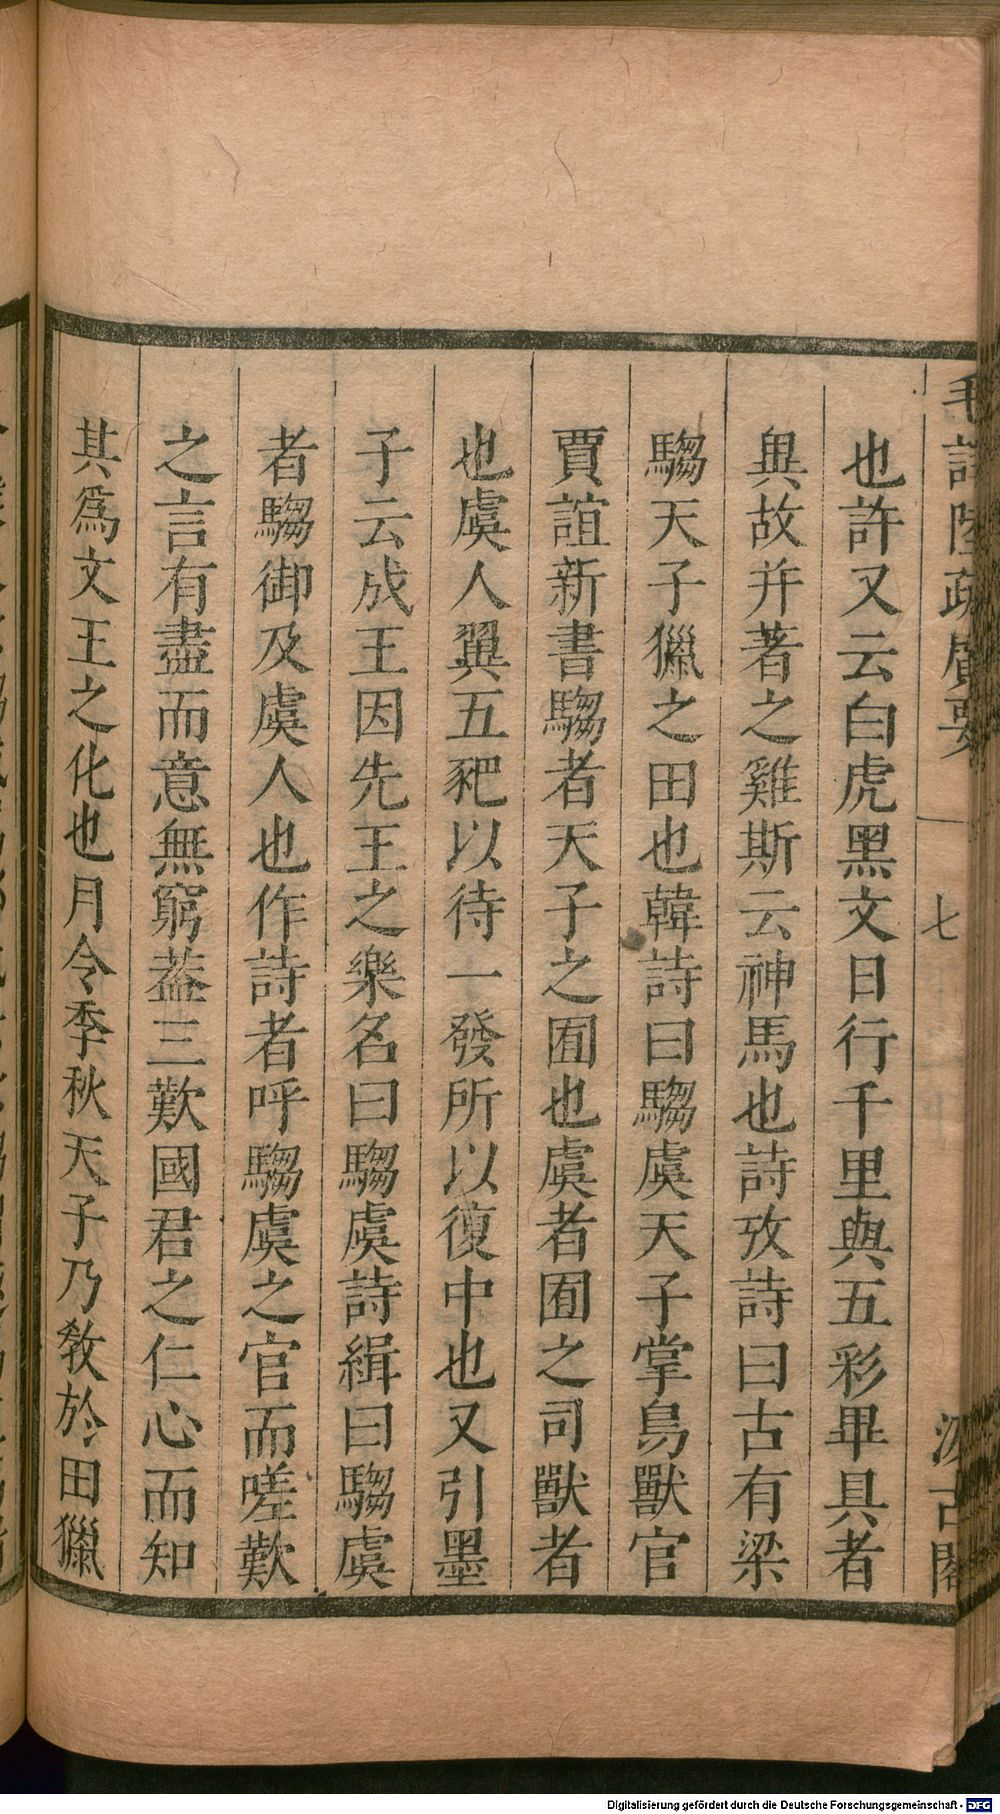 毛詩陸疏廣要
七
汲古閣
也許又云白虎黑文日行千里與五彩畢具者
異故并著之雞斯云神馬也詩攷詩曰古有梁
騶天子獵之田也韓詩曰騶虞天子掌鳥獸官
賈誼新書騶者天子之囿也虞者囿之司獸者
也虞人翼五豝以待一發所以復中也又引墨
子云成王因先王之樂名曰騶虞詩緝曰騶虞
者騶御及虞人也作詩者呼騶虞之官而嗟歎
之言有盡而意無窮葢三歎國君之仁心而知
其爲文王之化也月令季秋天子乃敎於田獵
Digitalisierung gefördert durch die Deutsche Forschungsgemeinschaft - DFG